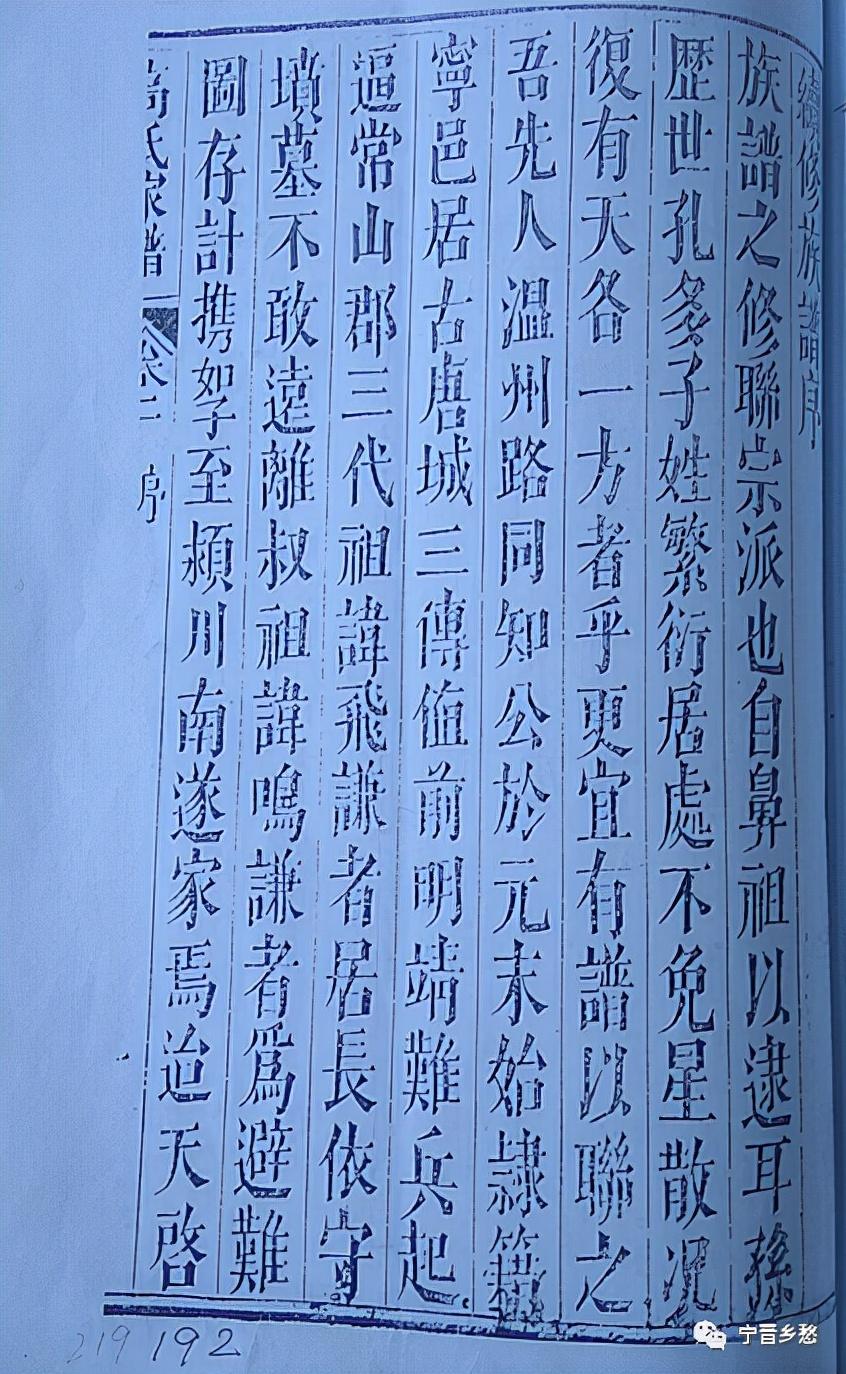 續修族譜序
族譜之修聯宗派也自鼻祖以逮耳孫
歷世孔多子姓繁衍居處不免星散况
復有天各一方者乎更宜有譜以聯之
吾先人温州路同知公於元末始隸籍
寧邑居古唐城三傳值前明靖難兵起
逼常山郡三代祖諱飛謙者居長依守
墳墓不敢遠離叔祖諱鳴謙者爲避難
圖存計携妻子至潁川南遂家焉迨天啓
高氏家譜 卷二 序
219 192
宁晋乡愁